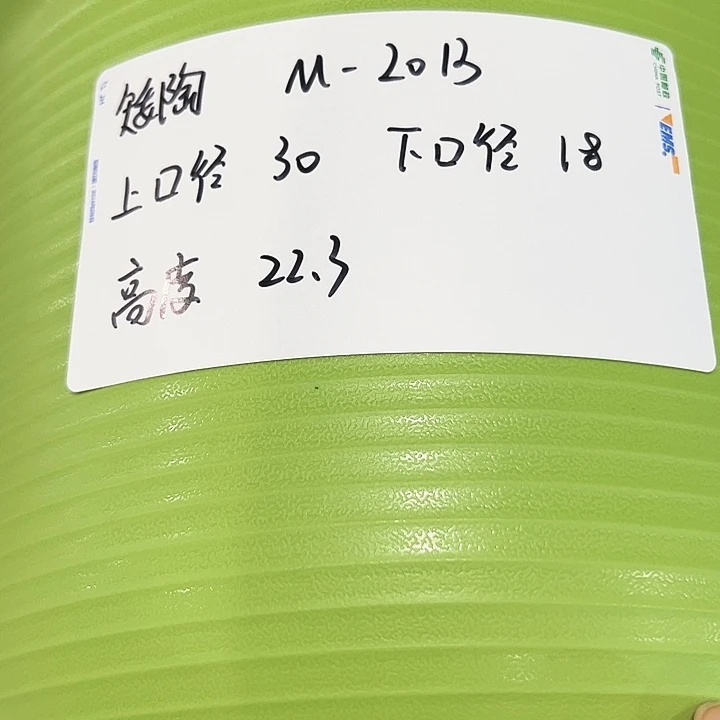 矮陶 M-2013
上口径 30 下口径 18
高度 22.3
中国邮政
CHINA POST
EMS